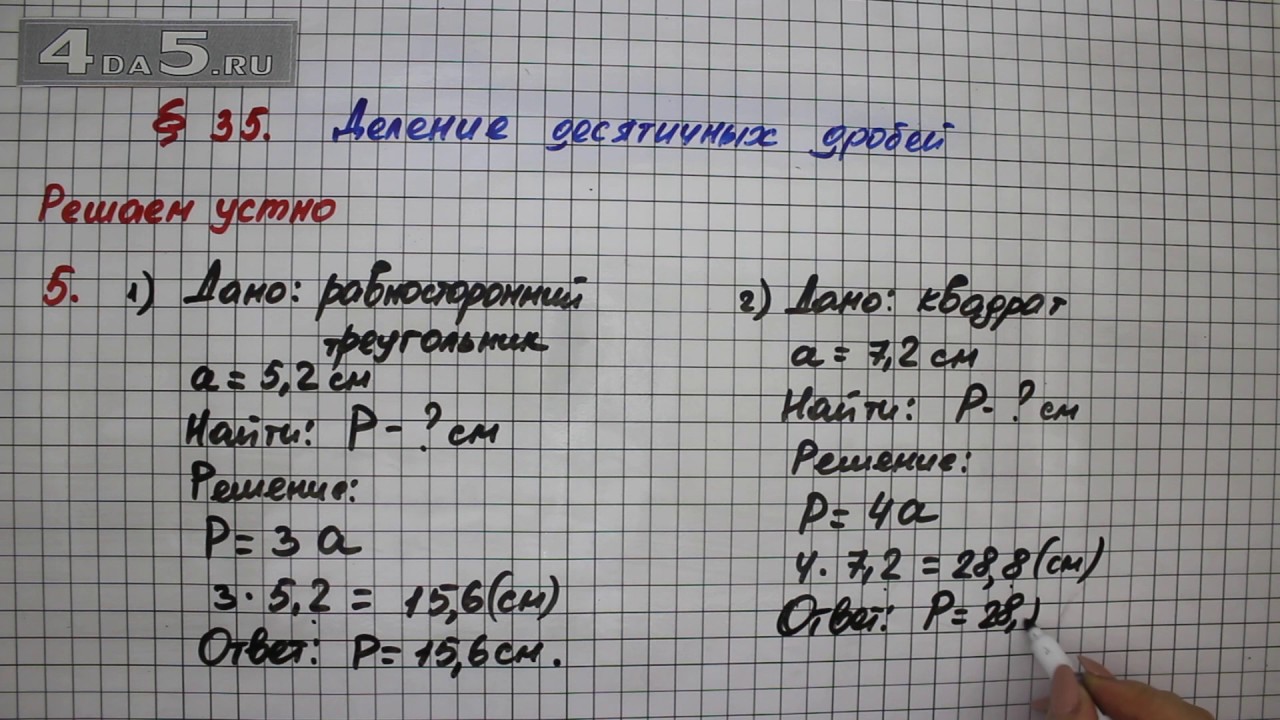 4DA5.RU
§ 35. Деление десятичных дробей
Решаем устно
5. 1) Дано: равносторонний
треугольник
a = 5,2 см
Найти: P - ? см
Решение:
P = 3 a
3 · 5,2 = 15,6 (см)
Ответ: P = 15,6 см.
2) Дано: квадрат
a = 7,2 см
Найти: P - ? см
Решение:
P = 4a
4 · 7,2 = 28,8 (см)
Ответ: P = 28,